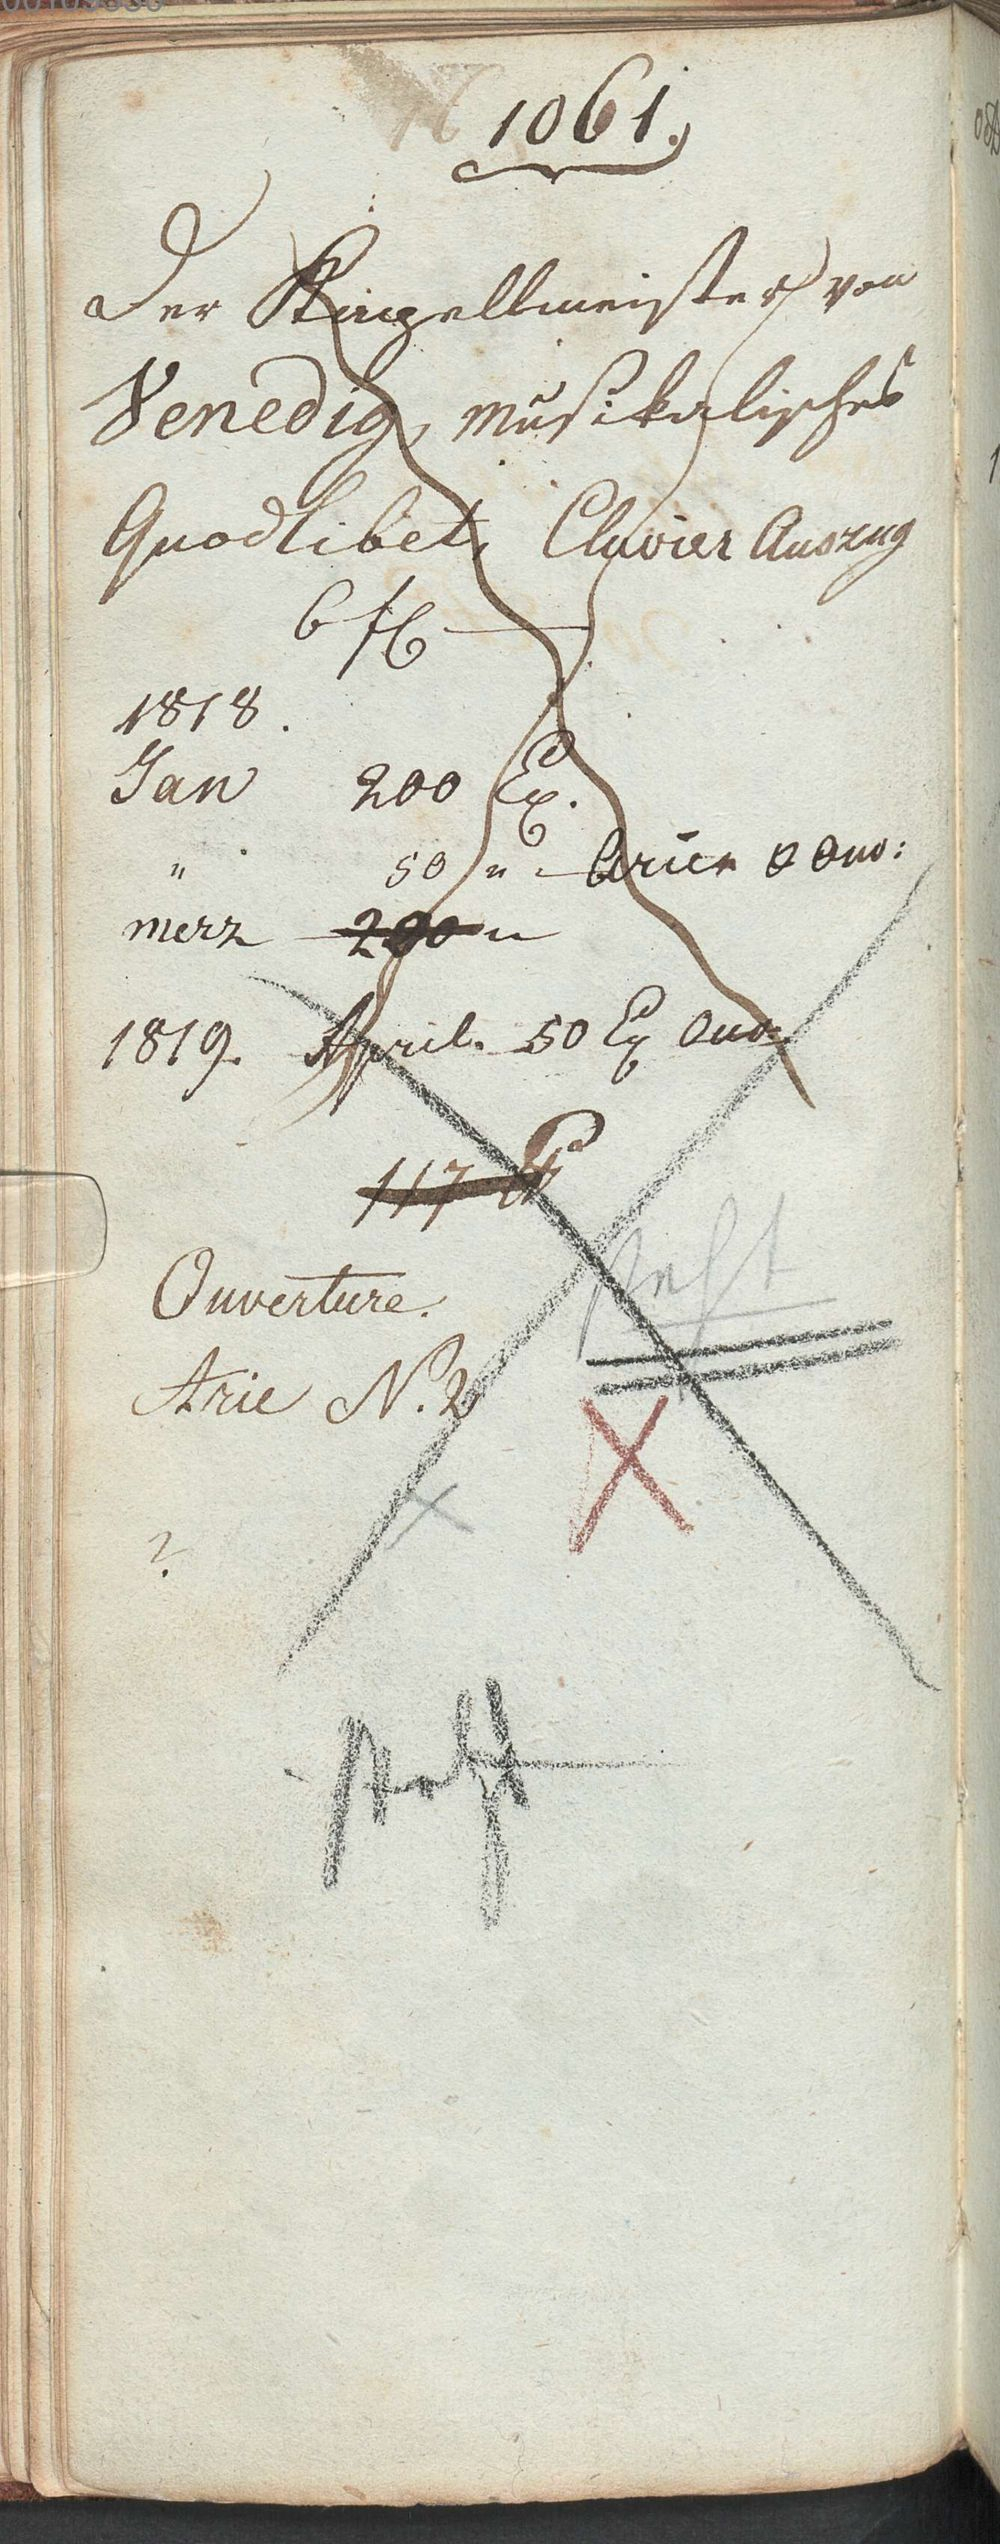 1061.
Der Kapellmeister von
Venedig, musikalisches
Quodlibet, Clavier Auszug
6 f
1818.
Jan 200 Ex.
" 50 " Arien
merz 200 "
1819. April. 50 Ex Ouv:
117
Ouverture.
Arie N. 2
?